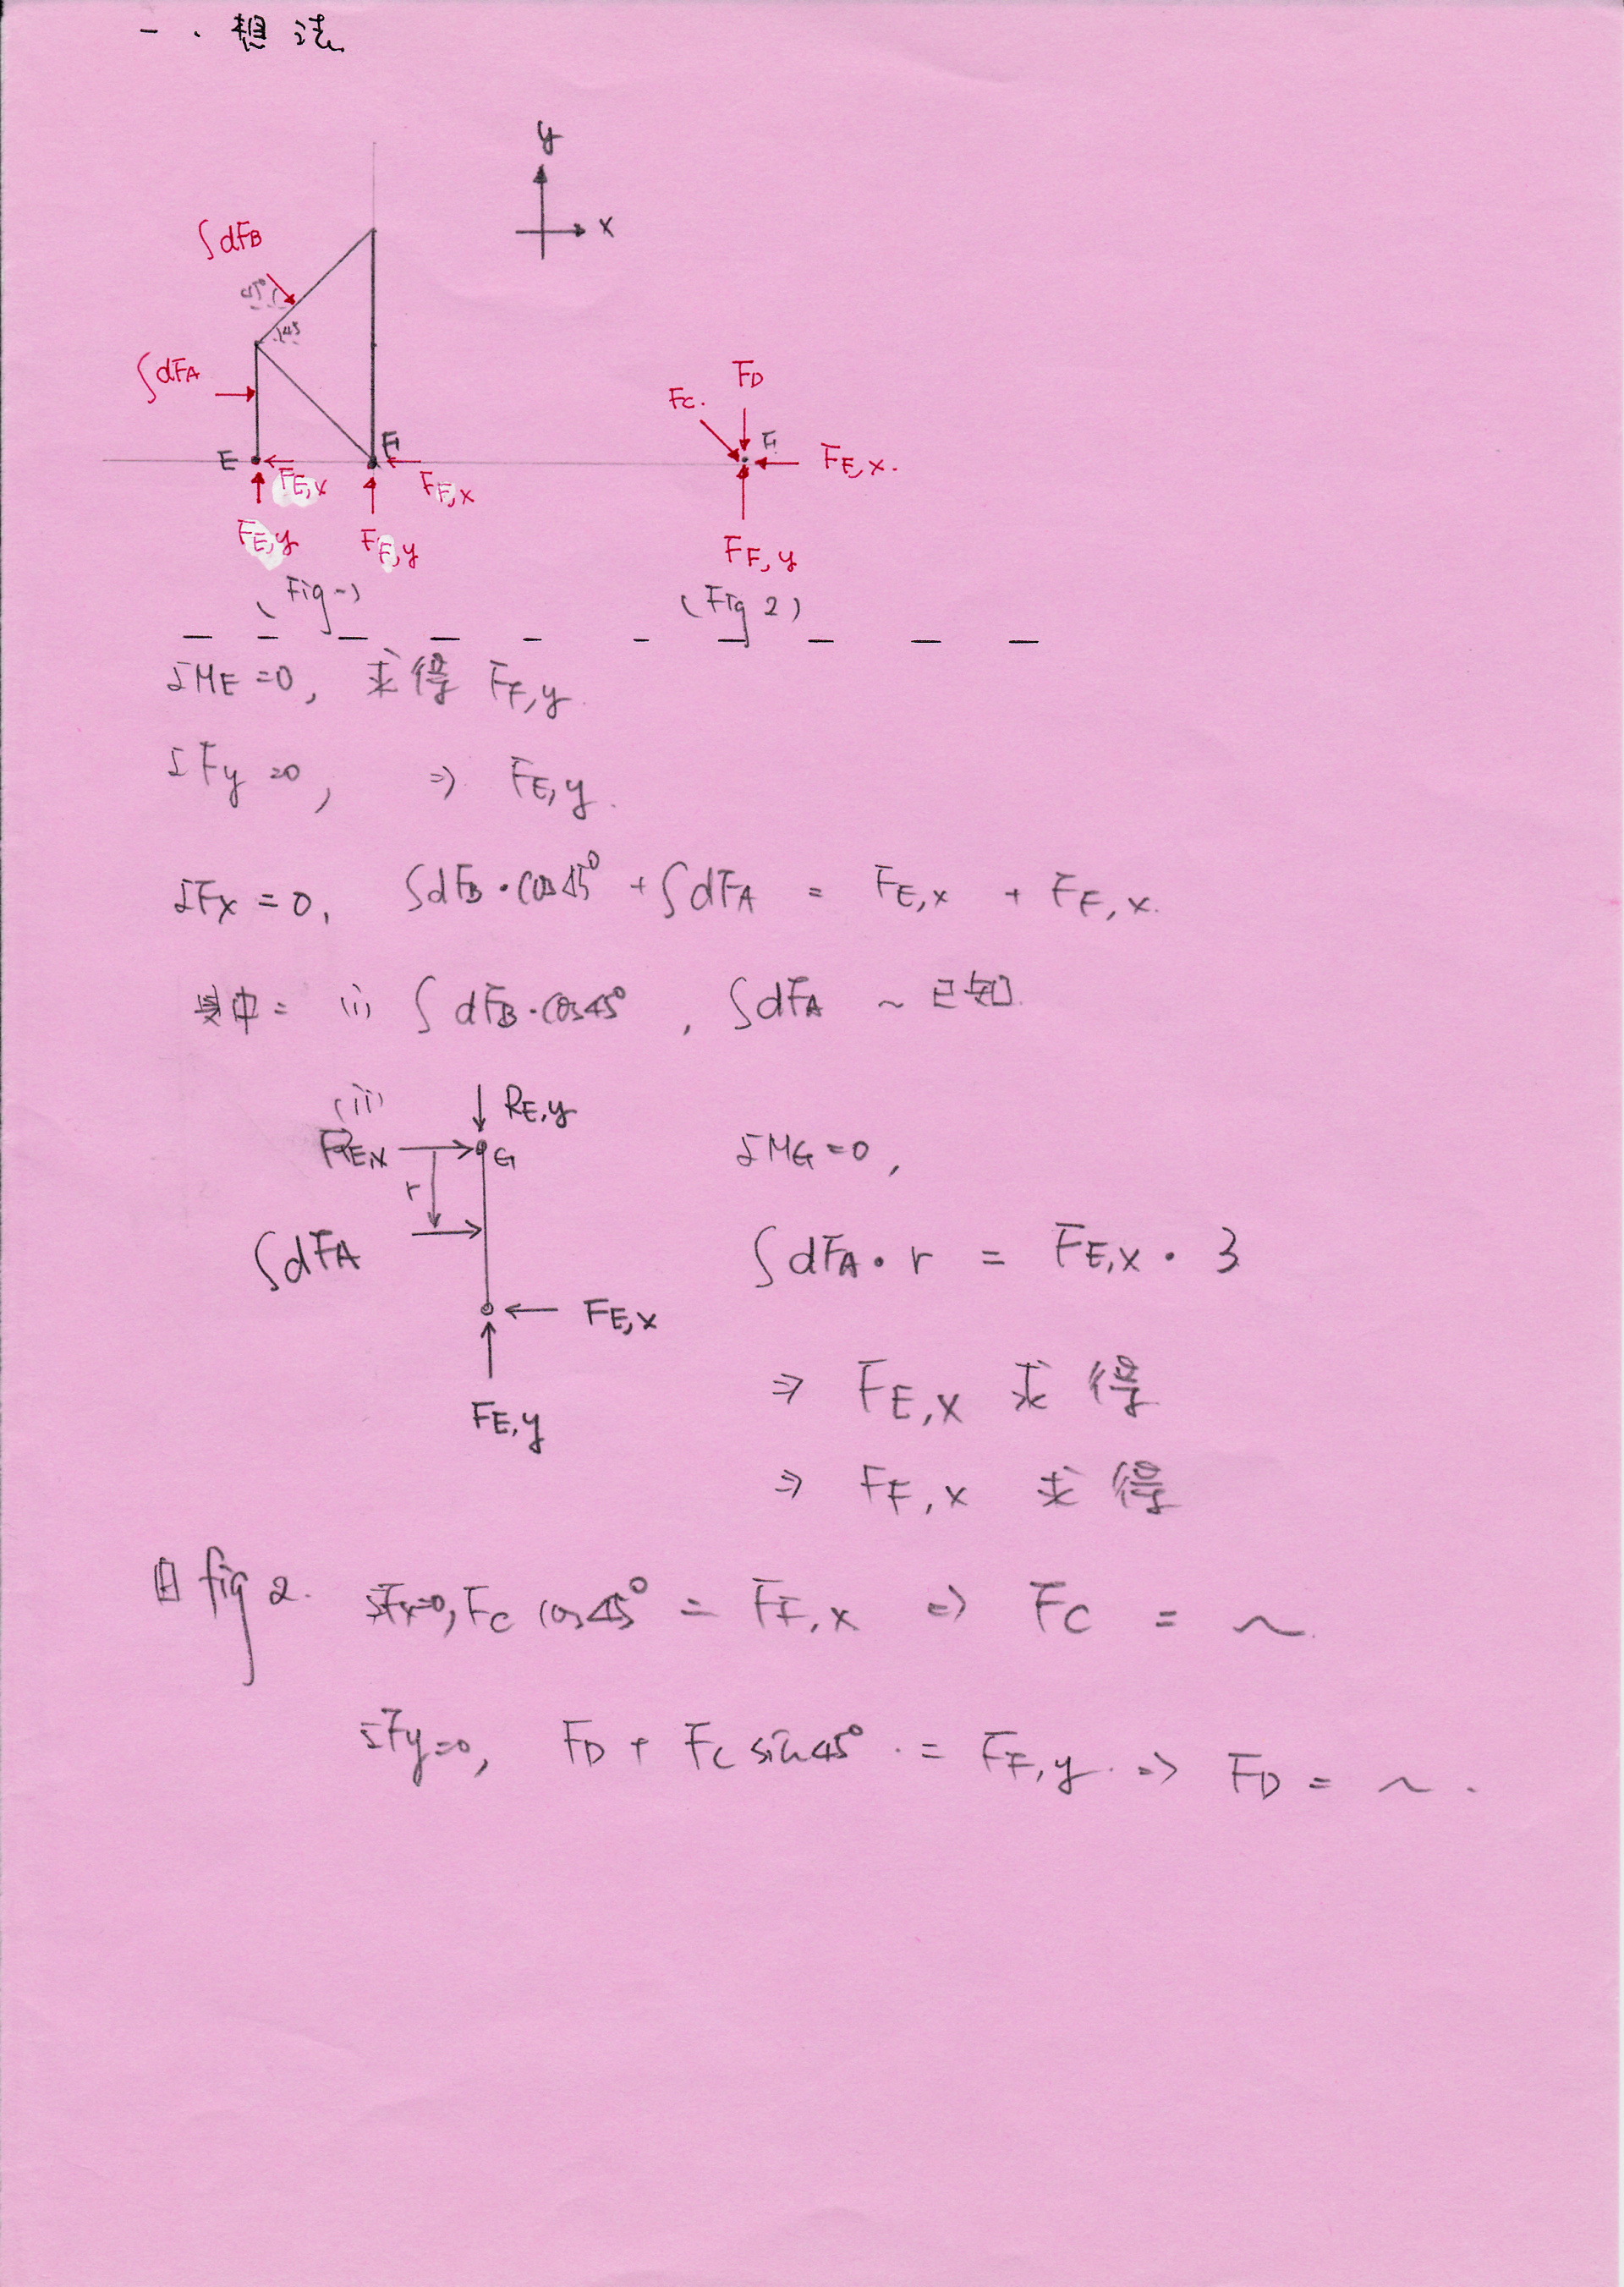 一、想法
y
x
∫dFB
45°
45
∫dFA
E
F
FE,x
FF,x
FE,y
FF,y
(Fig 1)
FD
Fc.
F
FE,x.
FF,y
(Fig 2)
ΣME=0, 求得 FF,y.
ΣFy=0, ⇒ FE,y.
ΣFx=0, ∫dFB·cos45° + ∫dFA = FE,x + FF,x.
其中= (i) ∫dFB·cos45°, ∫dFA ~ 已知.
(ii)
RE,y
RE,x
G
ΣMG=0,
r
∫dFA
∫dFA·r = FE,x·3
FE,x
FE,y
⇒ FE,x 求得
⇒ FF,x 求得
由 fig 2. ΣFx=0, FC cos45° = FF,x ⇒ FC = ~.
ΣFy=0, FD + FC sin45°. = FF,y. ⇒ FD = ~.